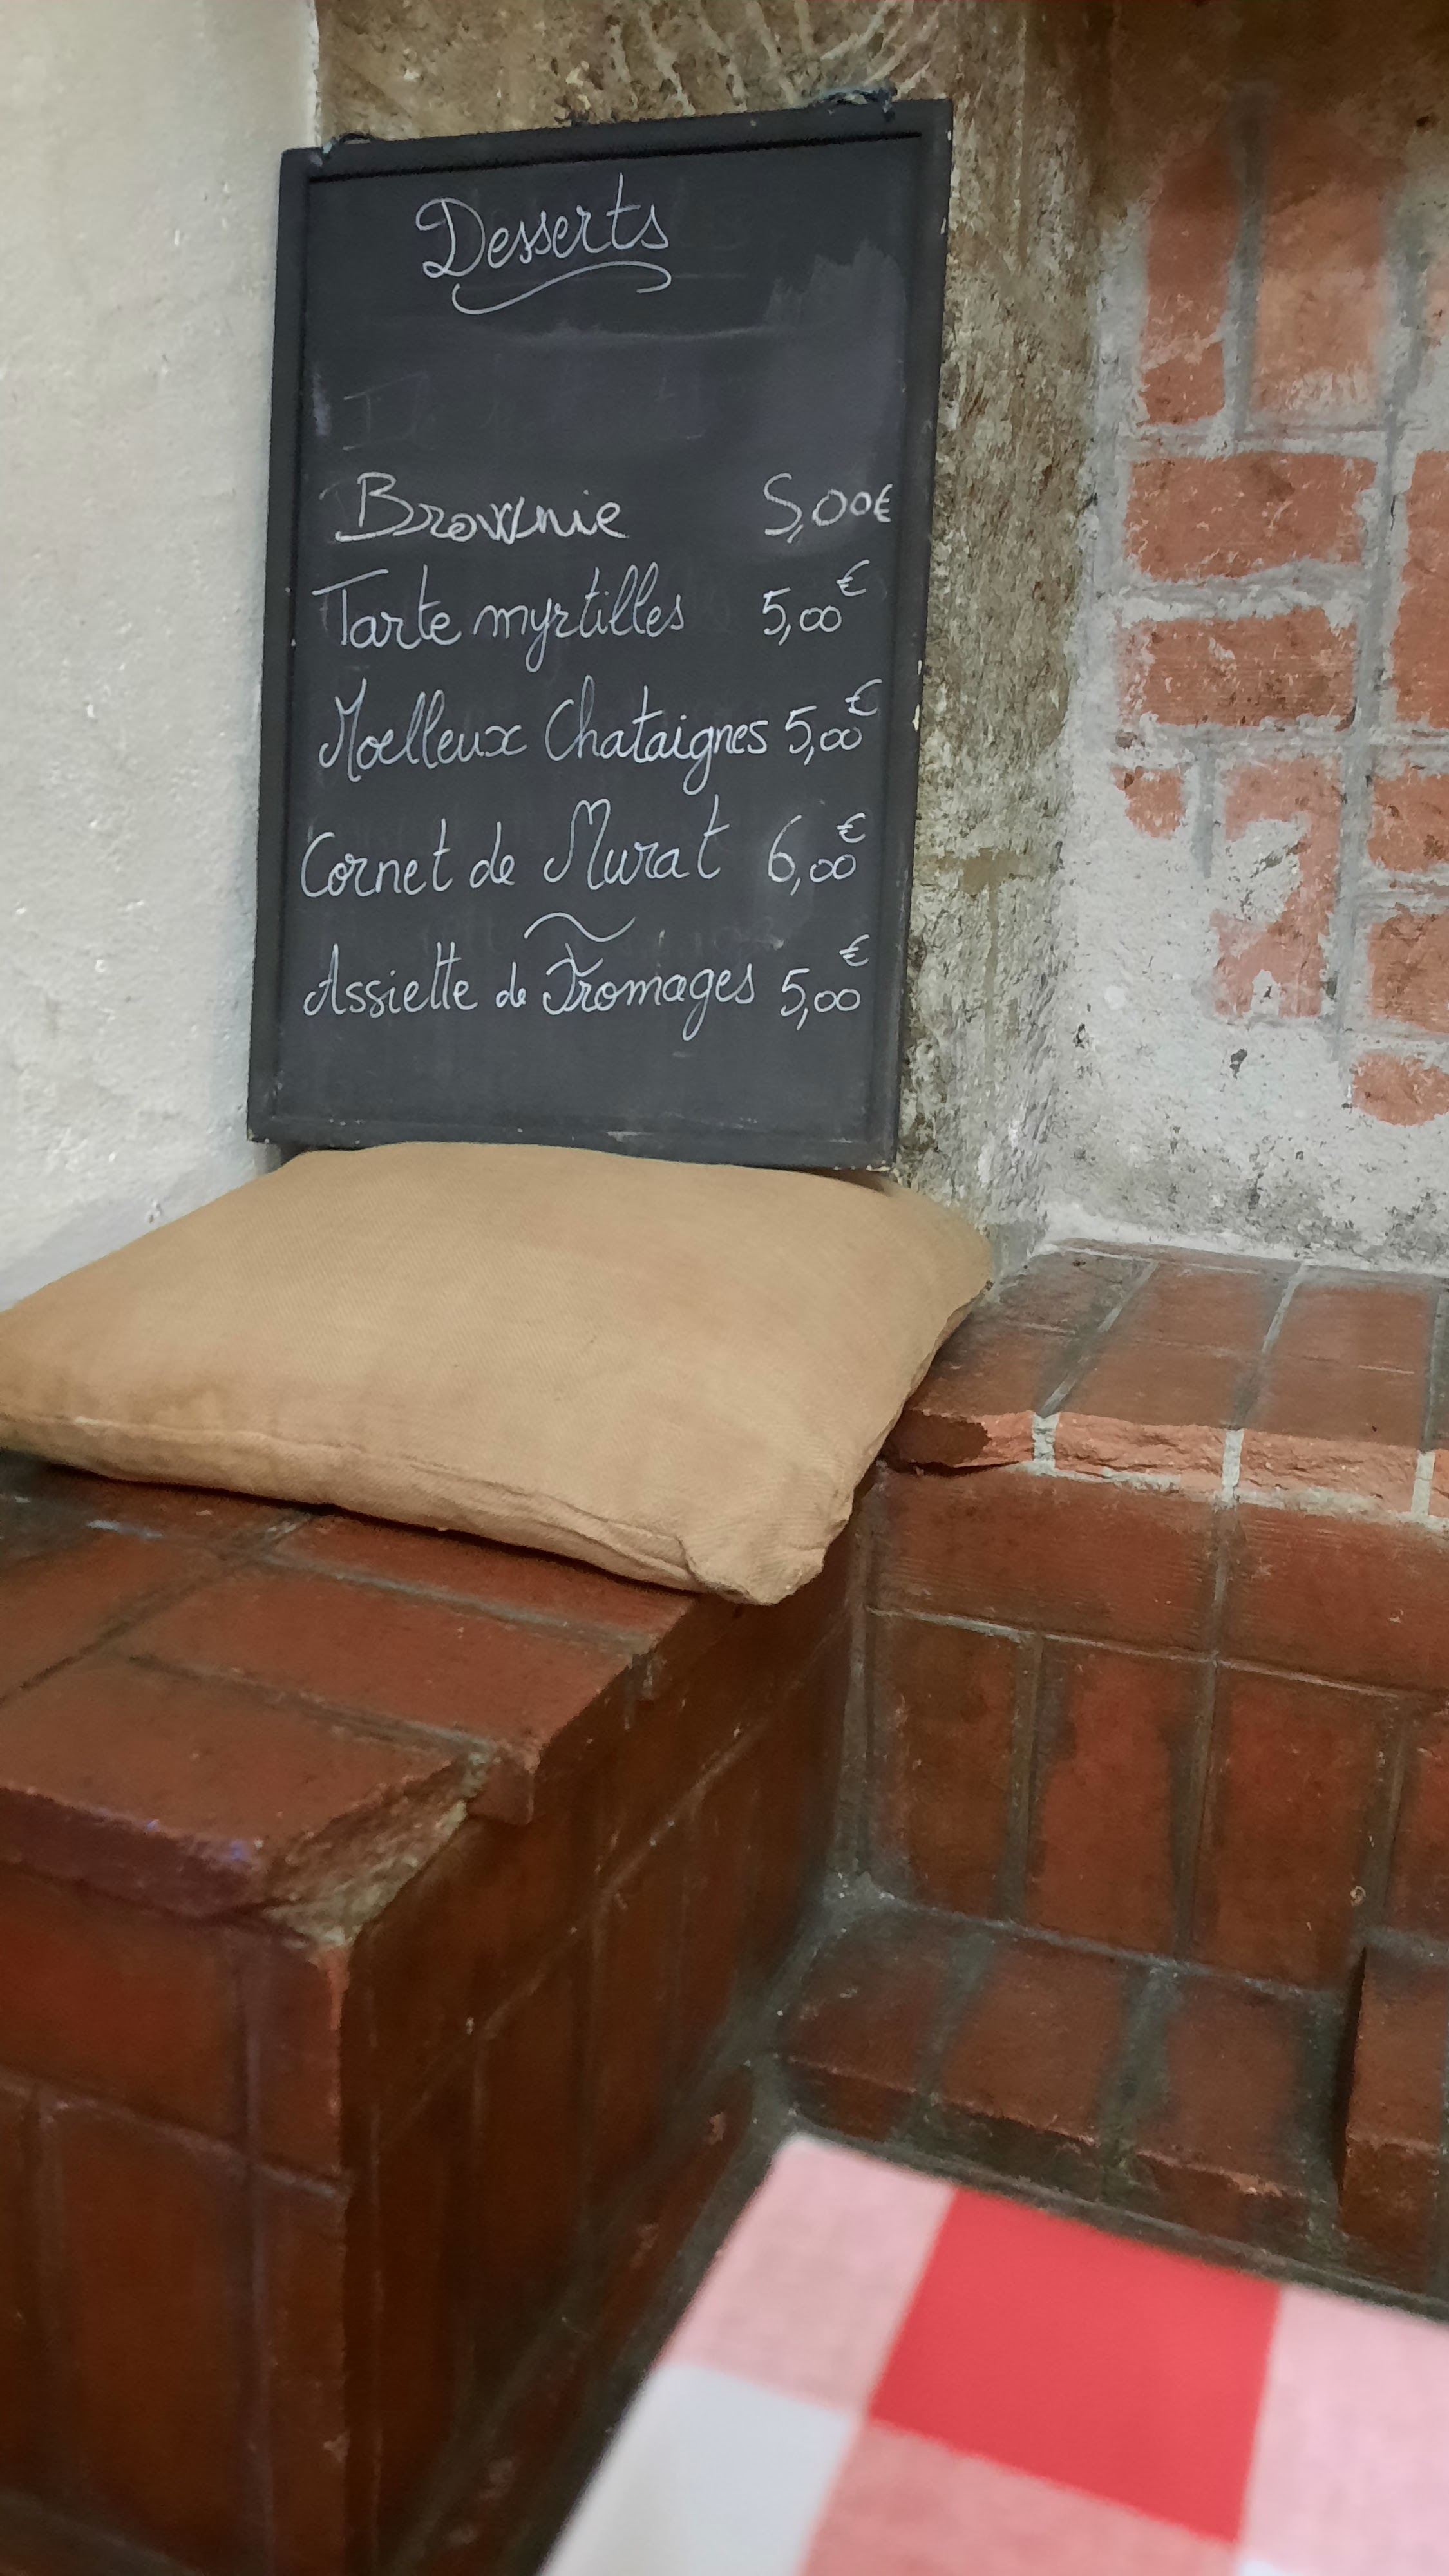 Desserts
Brownie 5,00€
Tarte myrtilles 5,00€
Moelleux Chataignes 5,00€
Cornet de Murat 6,00€
~
Assiette de Fromages 5,00€